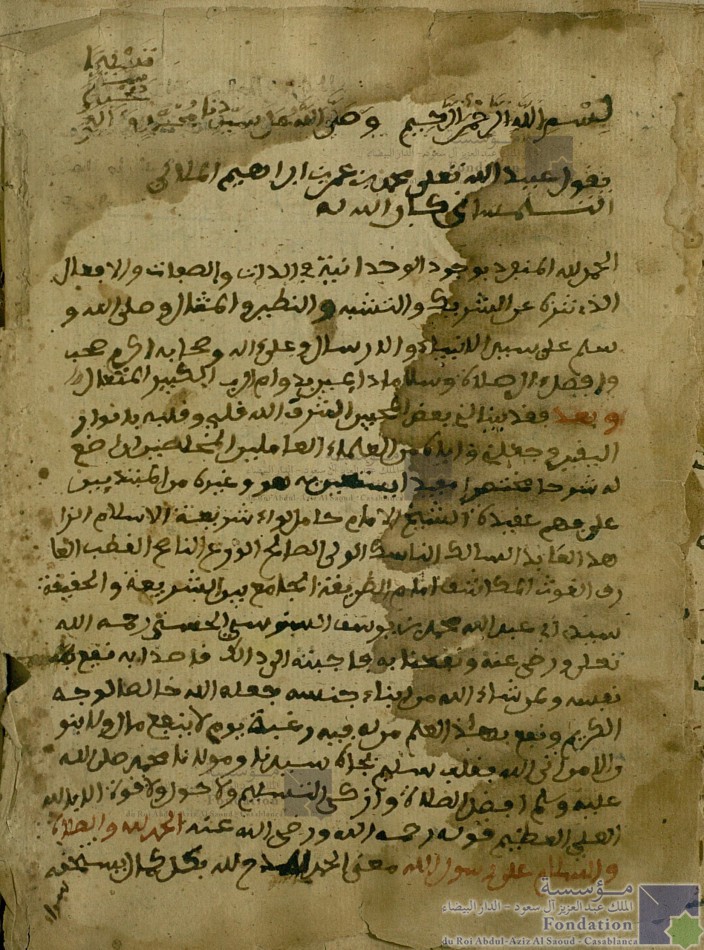 بسم الله الرحمن الرحيم وصلى الله على سيدنا محمد وءاله
يقول عبيد الله تعلى محمد بن عمر بن ابراهيم الملالي
التلمساني كان الله له
الحمد لله المنفرد بوجود الوحدانية في الذات والصفات والافعال
الذي تنزه عن الشريك والتشبه والنظير والمثال وصلى الله و
سلم على سيد الانبياء والارسال وعلى اله وصحابه اكرم صحب
وافضل ال صلاة وسلاما دايمين بدوام الرب الكبير المتعال
وبعد فقد سالني بعض المحبين اشرق الله قلبي وقلبه بانوار
اليقين وجعلني واياه من العلماء العاملين المخلصين ان اضع
له شرحا مختصرا مفيدا يستعين به هو وغيره من المبتديين
على فهم عقيدة الشيخ الامام حامل لواء شريعة الاسلام الزا
هد العابد السالك الناسك الولي الصالح الورع الناصح القطب العا
رف الغوث المكاشف امام الطريقة الجامع بين الشريعة والحقيقة
سيدي ابي عبد الله محمد بن يوسف السنوسي الحسني رحمه الله
تعلى ورضي عنه ونفعنا به فاجبته الى ذالك قاصدا به نفع
نفسه ومن شاء الله من ابناء جنسه جعله الله خالصا لوجهه
الكريم ونفع بهذا العلم من له فيه رغبة يوم لا ينفع مال ولا بنو
ن الا من اتى الله بقلب سليم بجاه سيدنا ومولانا محمد صلى الله
عليه وسلم افضل الصلاة وازكى التسليم ولا حول ولا قوة الا بالله
العلي العظيم قوله رحمه الله ورضي الله عنه الحمد لله والصلاة
والسلام على رسول الله معنى الحمد لله بكل كمال يستحقه
سواء
مؤسسة
الملك عبد العزيز آل سعود - الدار البيضاء
Fondation
du Roi Abdul-Aziz Al Saoud - Casablanca